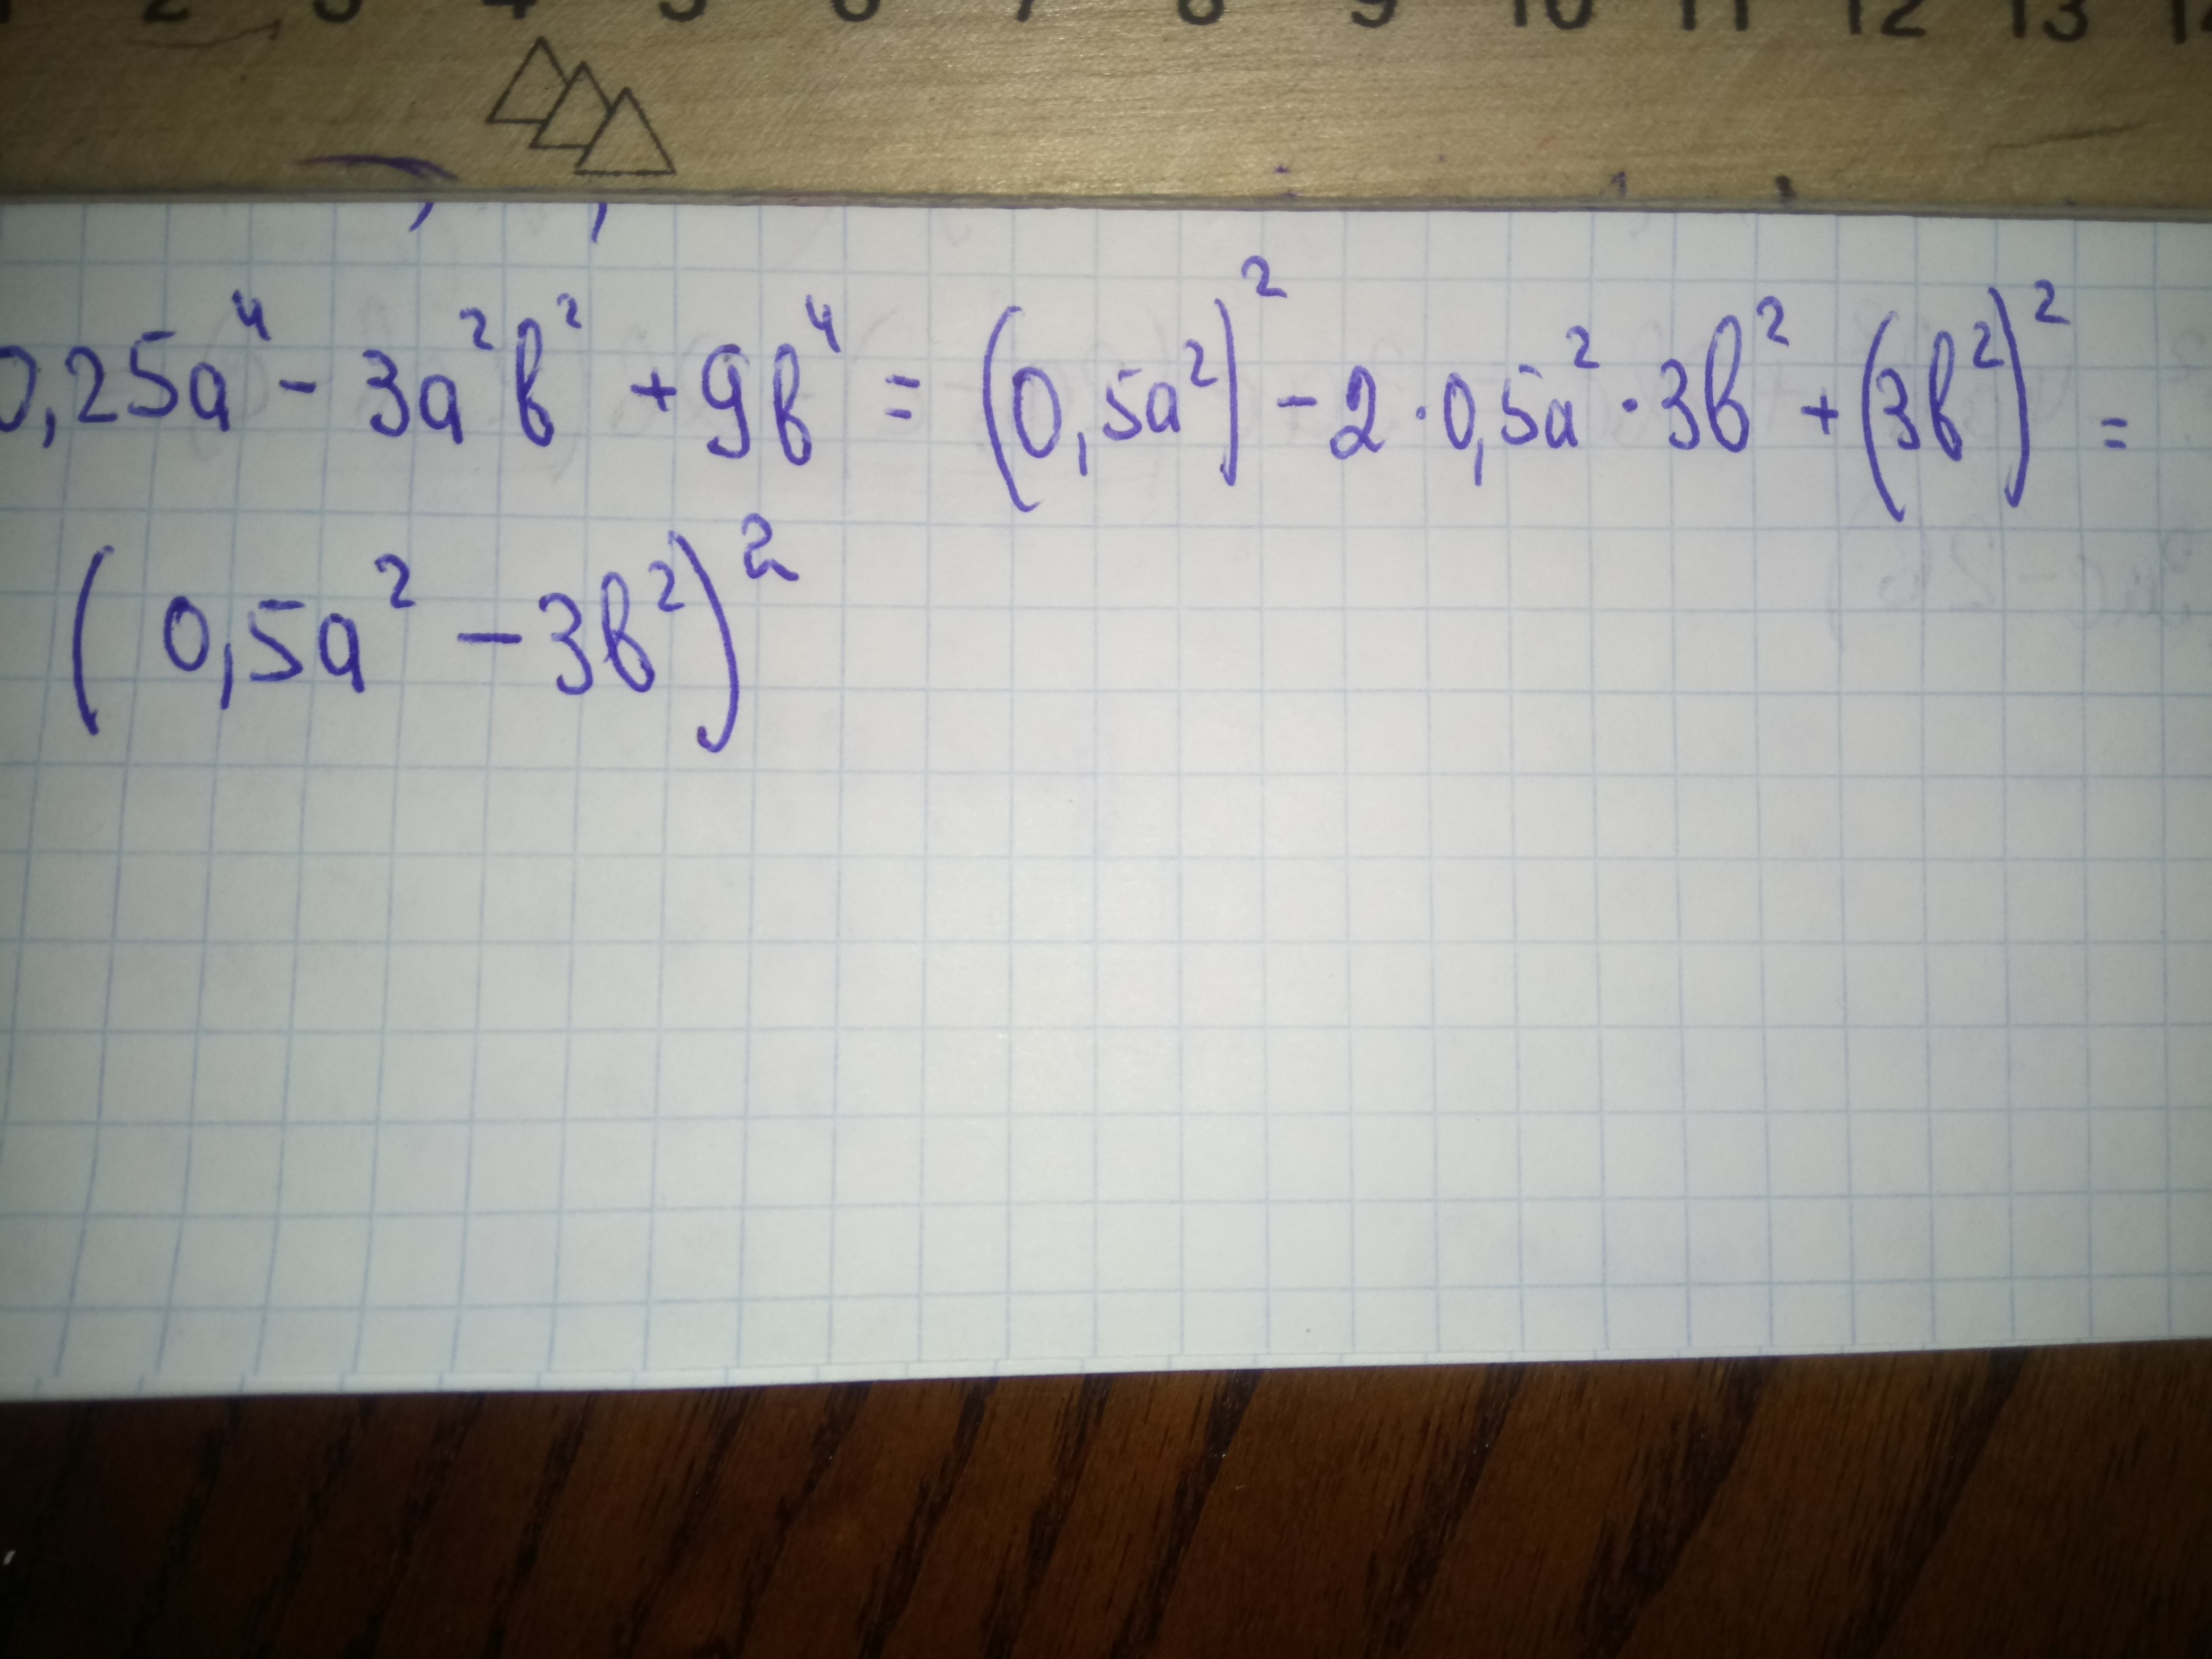 1 2 3 4 5 6 7 8 9 10 11 12 13 14
0,25a⁴ - 3a²b² + 9b⁴ = (0,5a²)² - 2 · 0,5a² · 3b² + (3b²)² =
(0,5a² - 3b²)²